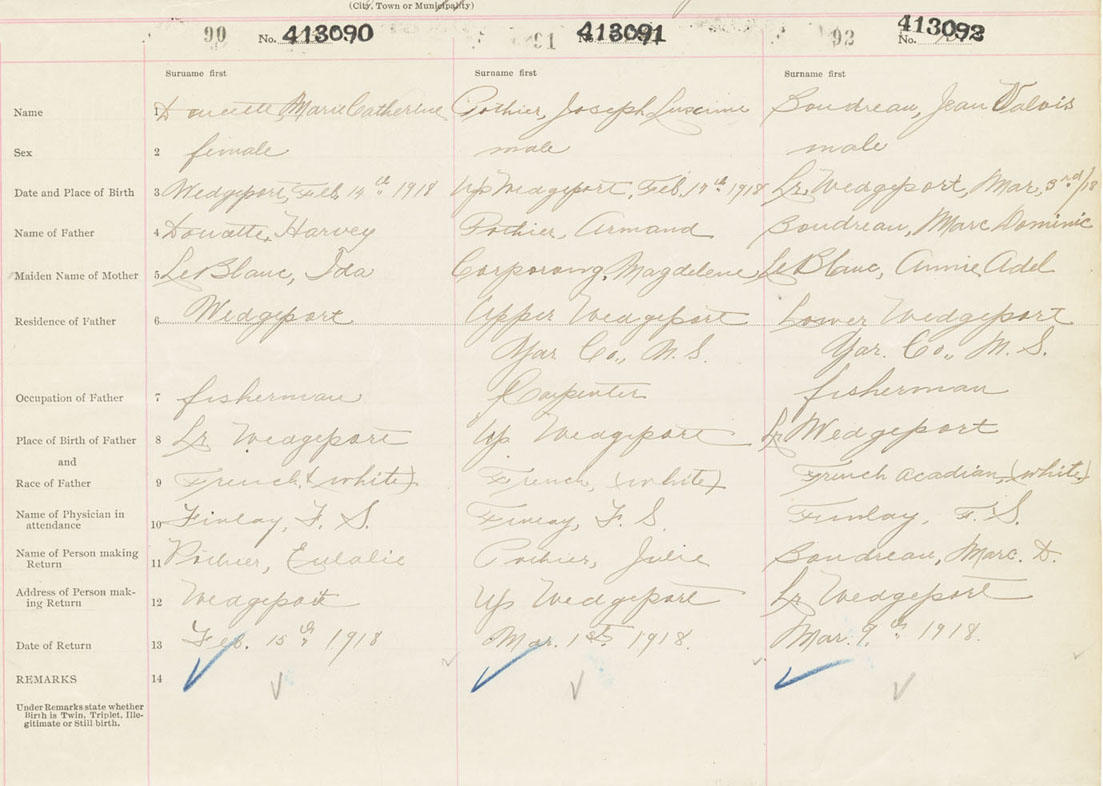 (City, Town or Municipality)
90 No. 413090 91 No. 413091 92 No. 413092
Surname first Surname first Surname first
Name 1 Doucette, Marie Catherine Pothier, Joseph Boudreau, Jean Valois
Sex 2 female male male
Date and Place of Birth 3 Wedgeport, Feb. 14th 1918 Up Wedgeport, Feb, 17th 1918 Lr. Wedgeport, Mar, 3rd/18
Name of Father 4 Doucette, Harvey Pothier, Armand Boudreau, Marc Dominic
Maiden Name of Mother 5 LeBlanc, Ida Corporong, Magdelene LeBlanc, Annie Adel
Residence of Father 6 Wedgeport Upper Wedgeport Lower Wedgeport
Yar Co., N. S. Yar. Co., N. S.
Occupation of Father 7 fisherman Carpenter fisherman
Place of Birth of Father 8 Lr Wedgeport Up Wedgeport Lr Wedgeport
and
Race of Father 9 French, (white) French, (white) French Acadian, (white)
Name of Physician in
attendance 10 Finlay, F. S. Finlay, F. S. Finlay, F. S.
Name of Person making
Return 11 Pothier, Eulalie Pothier, Julie Boudreau, Marc. D.
Address of Person mak-
ing Return 12 Wedgeport Up Wedgeport Lr Wedgeport
Date of Return 13 Feb. 15th 1918 Mar. 1st. 1918. Mar. 9th 1918.
REMARKS 14
Under Remarks state whether
Birth is Twin, Triplet, Ille-
gitimate or Still birth.